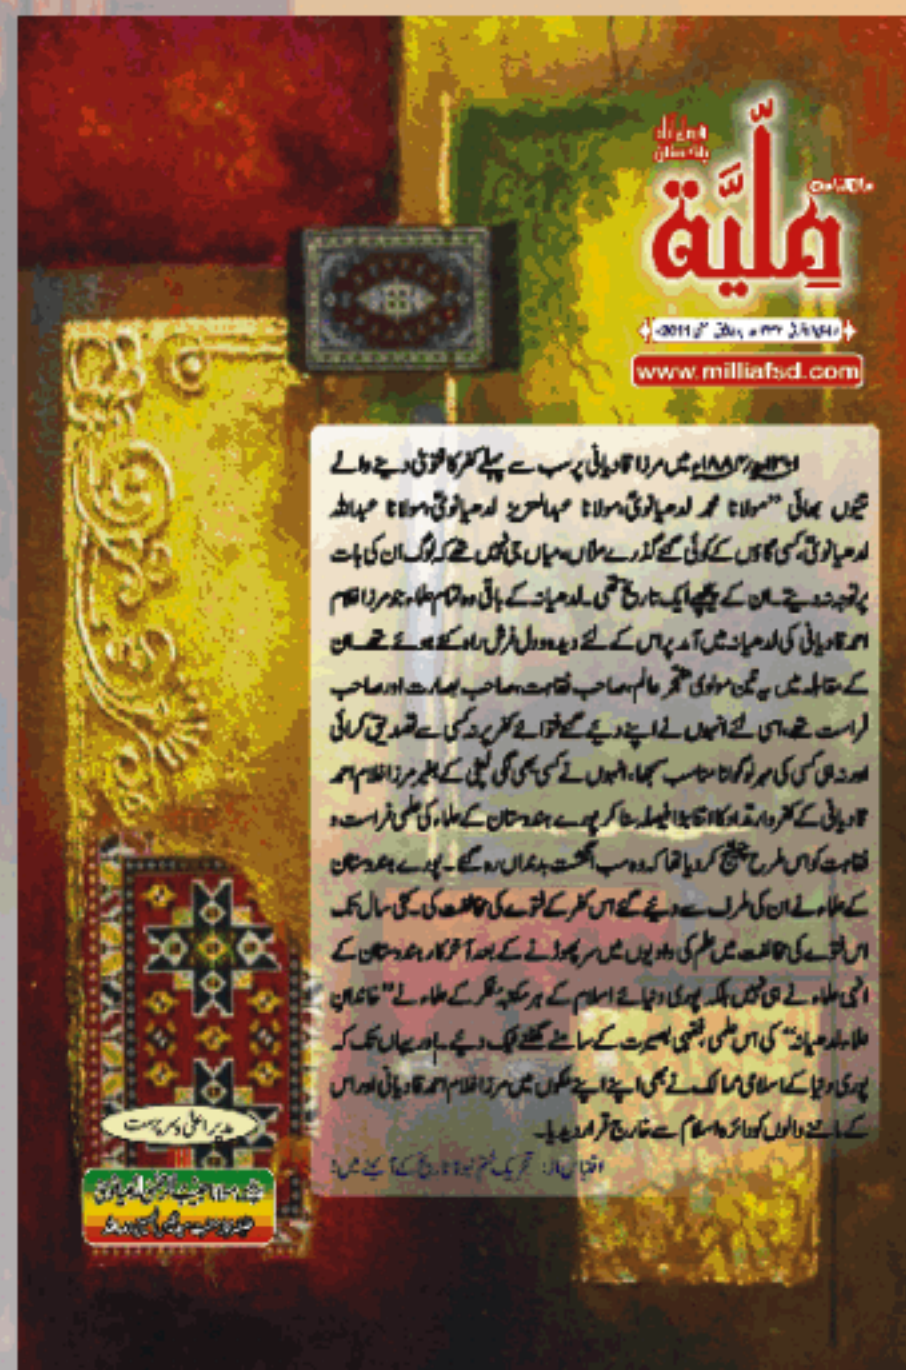 ماہنامہ
ملّیَّة
فیصل آباد
پاکستان
2011
www.milliafsd.com
میں مرزا قادیانی پر سب سے پہلے کفر کا فتویٰ دینے والے
تینوں بھائی ”مولانا محمد لدھیانویؒ، مولانا عبدالعزیز لدھیانویؒ، مولانا عبداللہ
لدھیانویؒ، کسی گاؤں کے کوئی گئے گذرے ملاں، میاں جی نہیں تھے کہ لوگ ان کی بات
پر توجہ نہ دیتے۔ ان کے پیچھے ایک تاریخ تھی۔ لدھیانہ کے باقی وہ تمام علماء جو مرزا غلام
احمد قادیانی کی لدھیانہ میں آمد پر اس کے لئے دیدہ و دل فرش راہ کئے ہوئے تھے۔ ان
کے مقابلہ میں یہ تین مولوی متبحر عالم، صاحب فقاہت، صاحب بصارت اور صاحب
فراست تھے، اسی لئے انہوں نے اپنے دیے گئے فتوائے کفر پر نہ کسی سے تصدیق کرائی
اور نہ ہی کسی کی مہر لگوانا مناسب سمجھا، انہوں نے کسی بھی لگی لپٹی کے بغیر مرزا غلام احمد
قادیانی کے کفر و ارتداد کا اتنا بڑا فیصلہ سنا کر پورے ہندوستان کے علماء کی علمی فراست و
فقاہت کو اس طرح چیلنج کر دیا تھا کہ وہ سب انگشت بدنداں رہ گئے۔ پورے ہندوستان
کے علماء نے ان کی طرف سے دیئے گئے اس کفر کے فتوے کی مخالفت کی۔ کئی سال تک
اس فتوے کی مخالفت میں علم کی وادیوں میں سر پھوڑنے کے بعد آخر کار ہندوستان کے
انہی علماء نے ہی نہیں بلکہ پوری دنیائے اسلام کے ہر مکتبہ فکر کے علماء نے ”خاندان
علماء لدھیانہ“ کی اس علمی، فقہی بصیرت کے سامنے گھٹنے ٹیک دیے۔ اور یہاں تک کہ
پوری دنیا کے اسلامی ممالک نے بھی اپنے اپنے ملکوں میں مرزا غلام احمد قادیانی اور اس
کے ماننے والوں کو دائرہ اسلام سے خارج قرار دیدیا۔
اقتباس از: تحریک ختم نبوۃ تاریخ کے آئینے میں!
مدیر اعلیٰ و سرپرست
مولانا حبیب الرحمن لدھیانوی